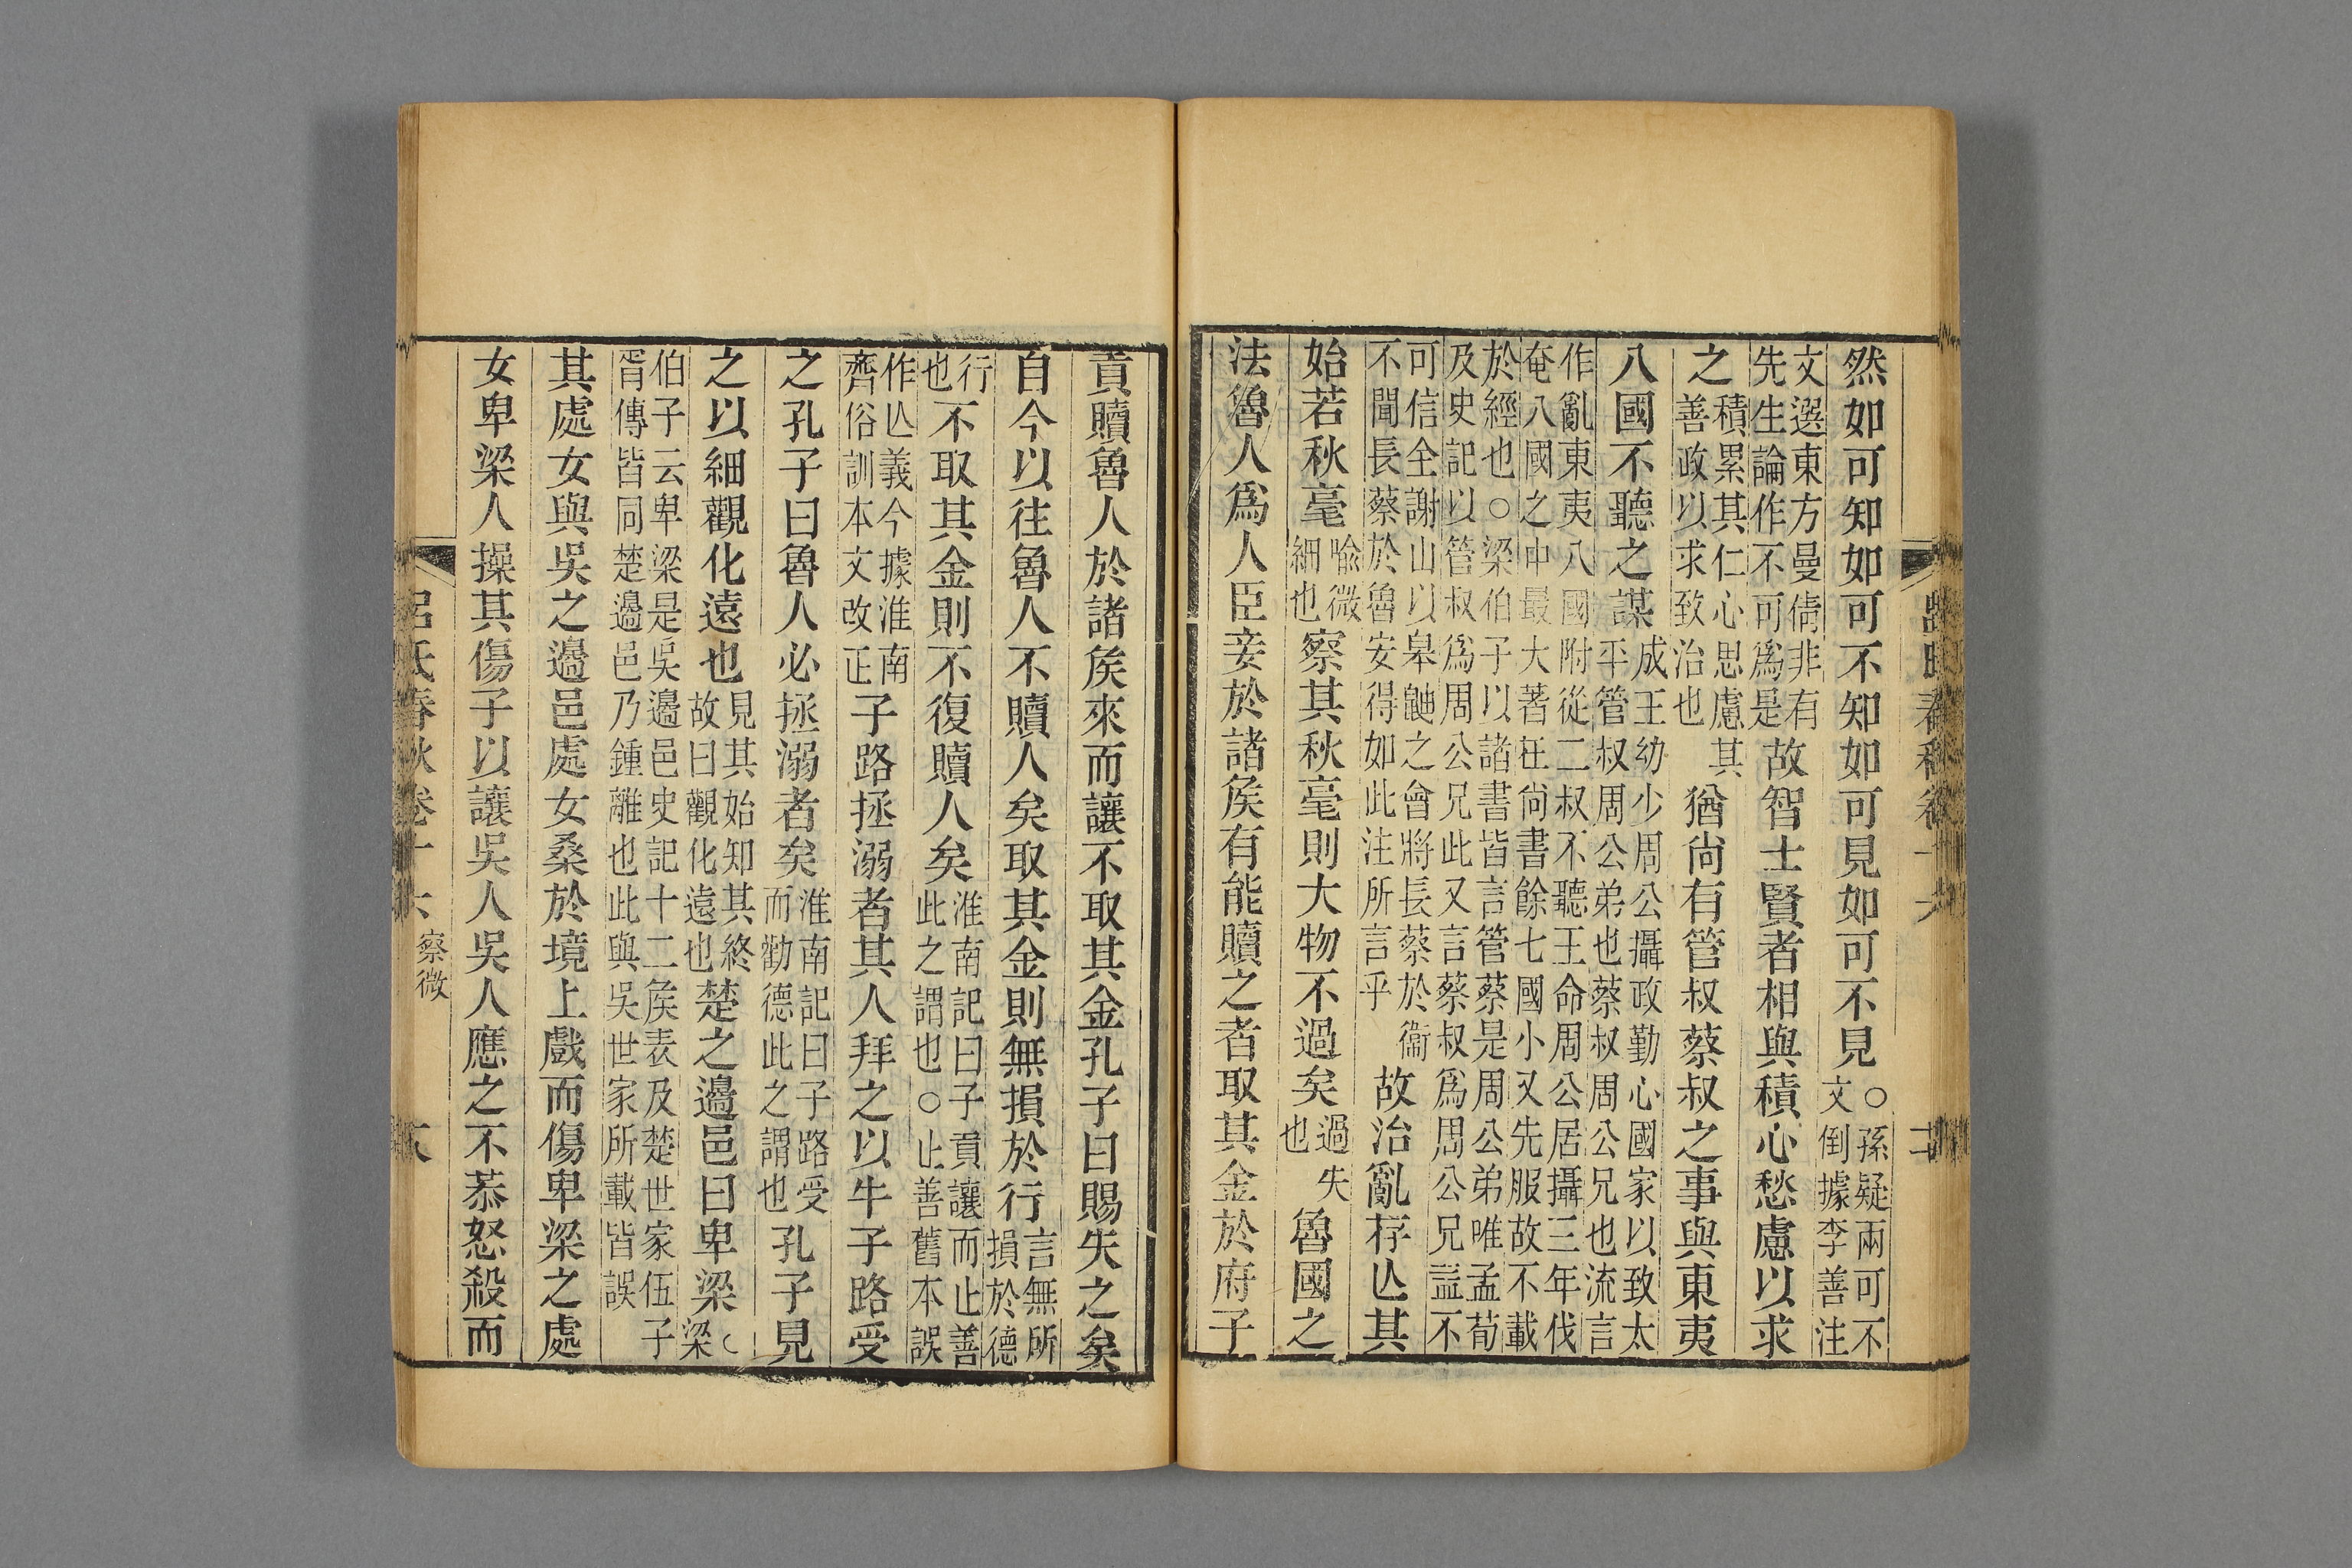 然如可知如可不知如可見如可不見○孫疑兩可不文倒據李善注
文選東方曼倩非有先生論作不可爲是故智士賢者相與積心愁慮以求
之積累其仁心思慮其善政以求致治也猶尙有管叔蔡叔之事與東夷
八國不聽之謀成王幼少周公攝政勤心國家以致太平管叔周公弟也蔡叔周公兄也流言
作亂東夷八國附從二叔不聽王命周公居攝三年伐奄八國之中最大著在尙書餘七國小又先服故不載
於經也○梁伯子以諸書皆言管蔡是周公弟唯孟荀及史記以管叔爲周公兄此又言蔡叔爲周公兄益不
可信全謝山以皋鼬之會將長蔡於衞不聞長蔡於魯安得如此注所言乎故治亂存亾其
始若秋毫喻微細也察其秋毫則大物不過矣過失也魯國之
法魯人爲人臣妾於諸矦有能贖之者取其金於府子
貢贖魯人於諸矦來而讓不取其金孔子曰賜失之矣
自今以往魯人不贖人矣取其金則無損於行言無所損於德
行也不取其金則不復贖人矣淮南記曰子貢讓而止善此之謂也○止善舊本誤
作亾義今據淮南齊俗訓本文改正子路拯溺者其人拜之以牛子路受
之孔子曰魯人必拯溺者矣淮南記曰子路受而勸德此之謂也孔子見
之以細觀化遠也見其始知其終故曰觀化遠也楚之邊邑曰卑梁○梁
伯子云卑梁是吳邊邑史記十二矦表及楚世家伍子胥傳皆同楚邊邑乃鍾離也此與吳世家所載皆誤
其處女與吳之邊邑處女桑於境上戲而傷卑梁之處
女卑梁人操其傷子以讓吳人吳人應之不恭怒殺而
呂氏春秋卷十六 察微